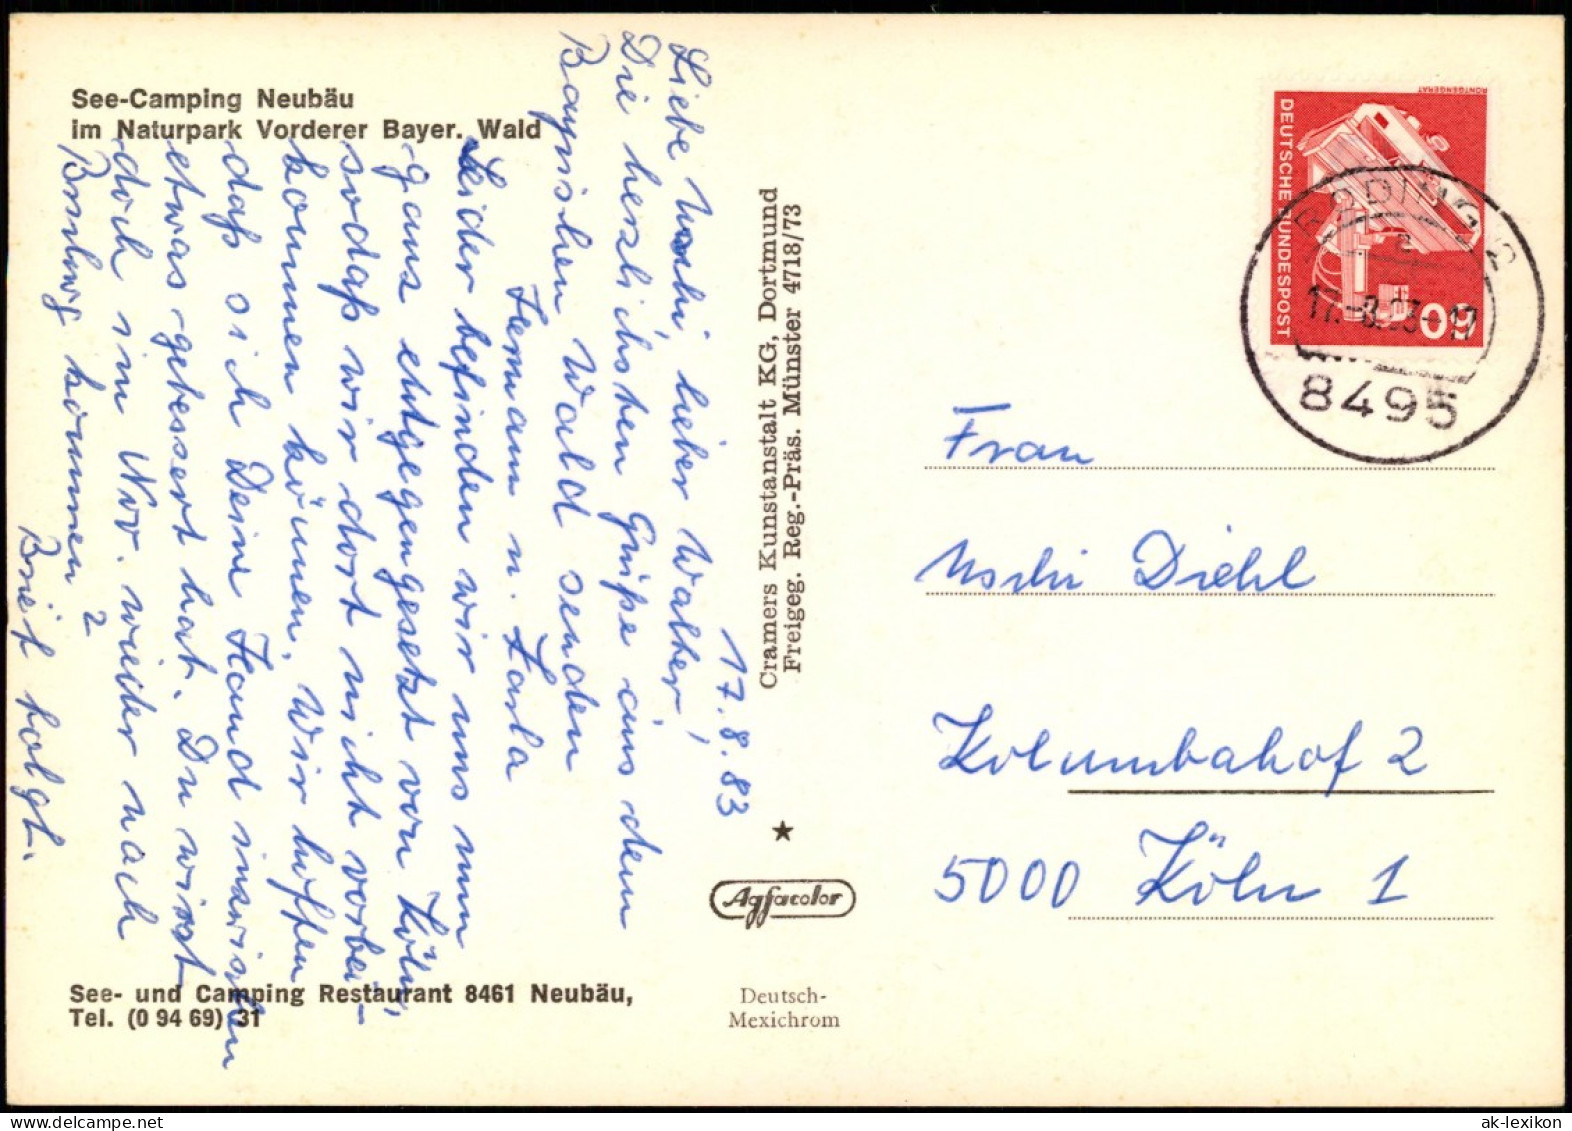 See-Camping Neubäu
im Naturpark Vorderer Bayer. Wald
17.8.83
Liebe Uschi, lieber Walter!
Die herzlichsten Grüße aus dem
Bayrischen Wald senden
Hermann u. Carla
Leider befinden wir uns nun
ganz entgegengesetzt von Köln,
sodaß wir dort nicht vorbei-
kommen können. Wir hoffen
daß sich Deine Hand inzwischen
etwas gebessert hat. Du wirst
doch im Nov. wieder nach
kommen?
Brief folgt.
See- und Camping Restaurant 8461 Neubäu,
Tel. (0 94 69) 31
Cramers Kunstanstalt KG, Dortmund
Freigeg. Reg.-Präs. Münster 4718/73
★
Agfacolor
Deutsch-
Mexichrom
RÖNTGENGERÄT
DEUTSCHE BUNDESPOST
60
RODING 2
a
17.-8.83-17
8495
Frau
Uschi Diehl
Kolumbahof 2
5000 Köln 1
ak-lexikon